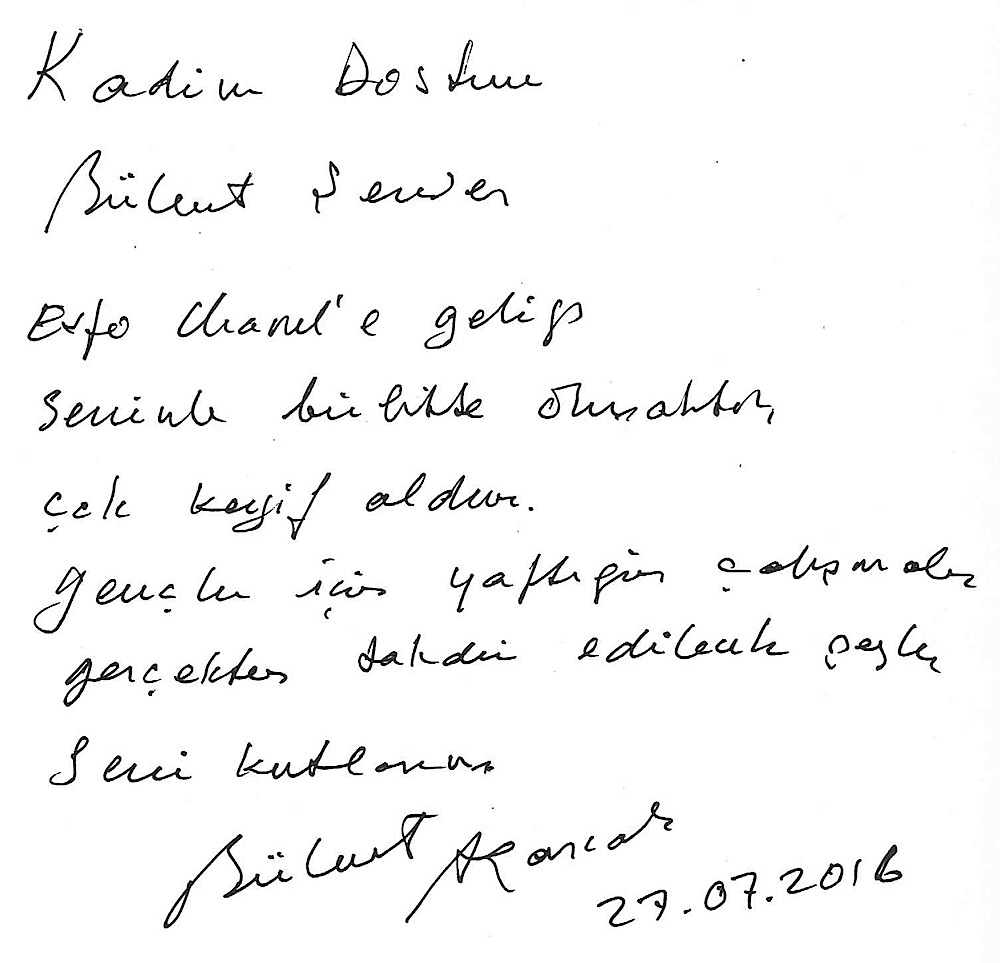 Kadim Dostum
Bülent Şenver
Exfo Channel'e gelip
Seninle birlikte olmaktan,
çok keyif aldım.
Gençler için yaptığın çalışmalar
gerçekten takdir edilecek şeyler
Seni kutlarım
Bülent
27.07.2016